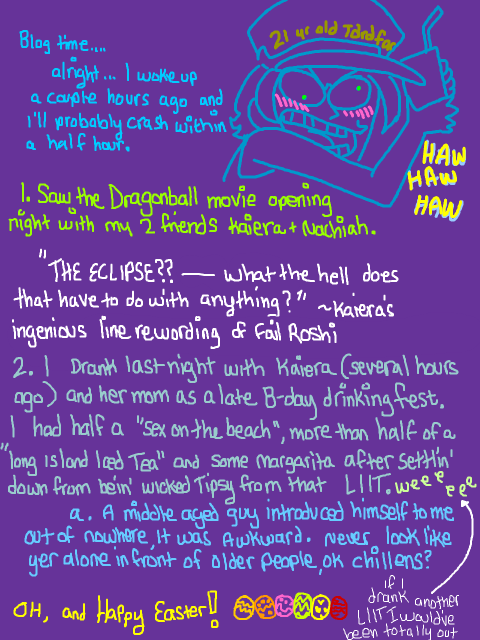 Blog time....
21 yr old Tdrdfar
alright... I woke up
a couple hours ago and
I'll probably crash within
a half hour.
HAW
HAW
HAW
1. Saw the Dragonball movie opening
night with my 2 friends Kaiera + Nachiah.
"THE ECLIPSE?? — what the hell does
that have to do with anything?" ~Kaiera's
ingenious line rewording of Fail Roshi
2. I Drank last night with Kaiera (several hours
ago) and her mom as a late B-day drinking fest.
I had half a "sex on the beach", more than half of a
"long island Iced Tea" and some margarita after settlin'
down from bein' wicked Tipsy from that LIIT. weeeeeee
a. A middle aged guy introduced himself to me
out of nowhere, it was Awkward. Never look like
yer alone in front of older people, ok chillens?
if I
drank another
LIIT I would've
been totally out
OH, and Happy Easter!